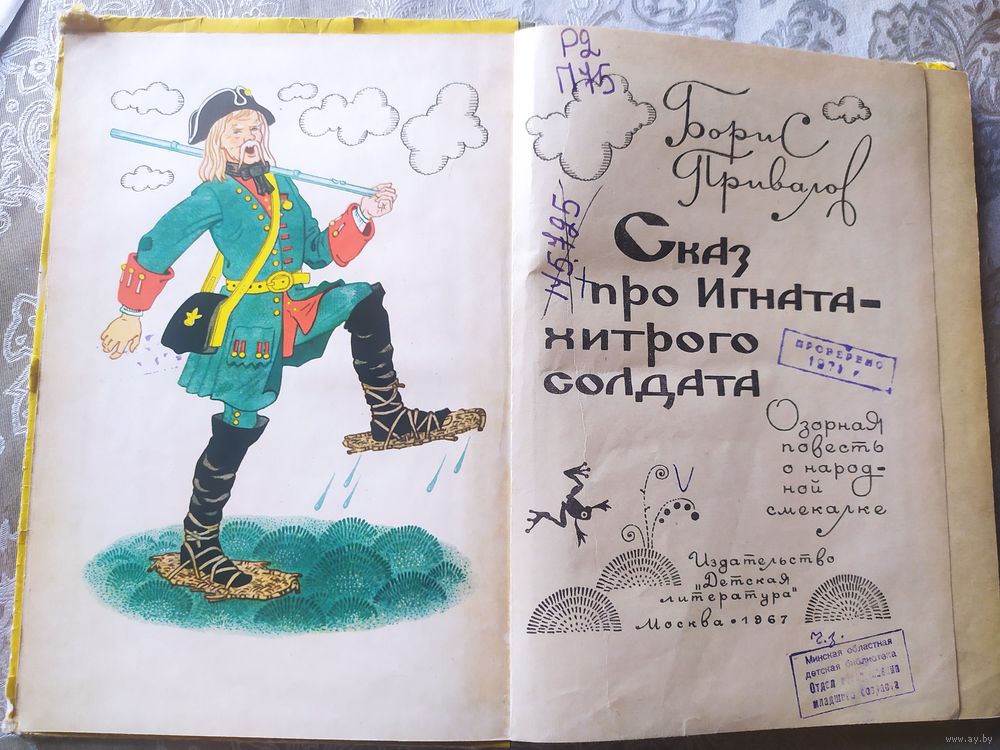 Р2
П75
Борис
Привалов
145.795
Сказ
про Игната-
хитрого
солдата
ПРОВЕРЕНО
1971 г
Озорная
повесть
о народ-
ной
смекалке
V
Издательство
„Детская
литература"
Москва • 1967
ч.з.
Минская областная
детская библиотека
Отдел
младшего возраста
www.ay.by